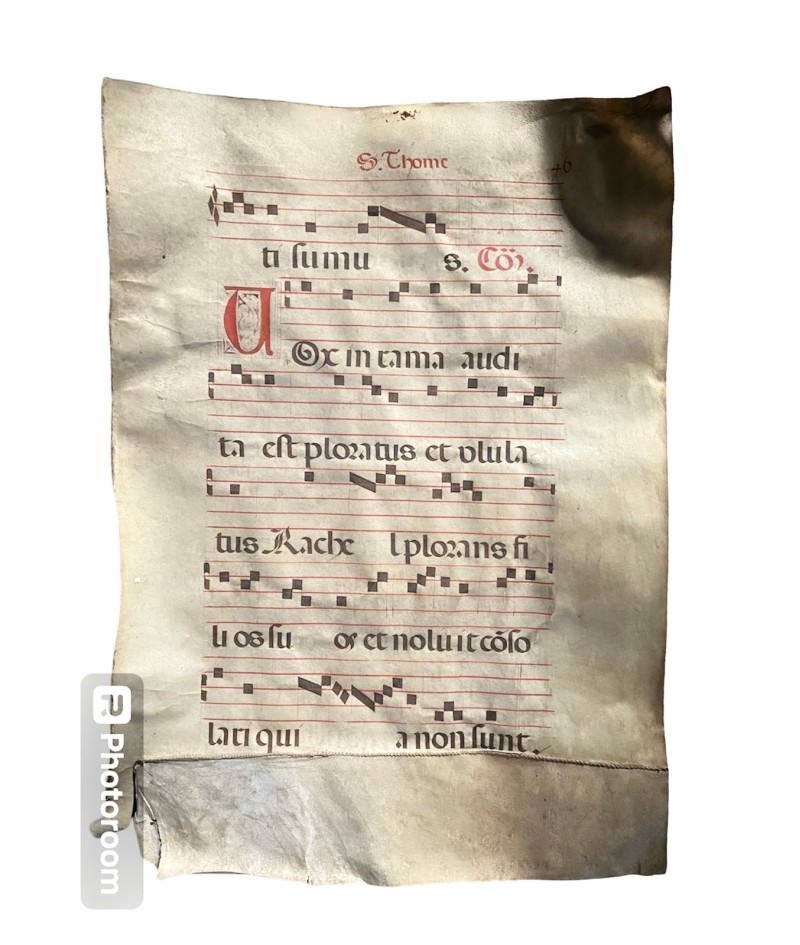 S. Thome
40
ti sumu s. Cōi.
VOx in rama audi
ta est ploratus et vlula
tus Rache l plorans fi
li os su os et noluit cōso
lari qui a non sunt.
Photoroom